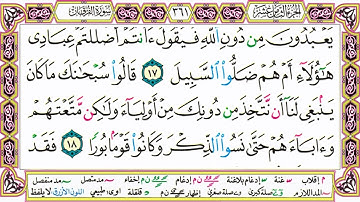 الجزء الثامن عشر ٣٦١ سورة الفرقان
يَعْبُدُونَ مِن دُونِ ٱللَّهِ فَيَقُولُ ءَأَنتُمْ أَضْلَلْتُمْ عِبَادِى
هَٰٓؤُلَآءِ أَمْ هُمْ ضَلُّوا۟ ٱلسَّبِيلَ ١٧ قَالُوا۟ سُبْحَٰنَكَ مَا كَانَ
يَنۢبَغِى لَنَآ أَن نَّتَّخِذَ مِن دُونِكَ مِنْ أَوْلِيَآءَ وَلَٰكِن مَّتَّعْتَهُمْ
وَءَابَآءَهُمْ حَتَّىٰ نَسُوا۟ ٱلذِّكْرَ وَكَانُوا۟ قَوْمًۢا بُورًا ١٨ فَقَدْ